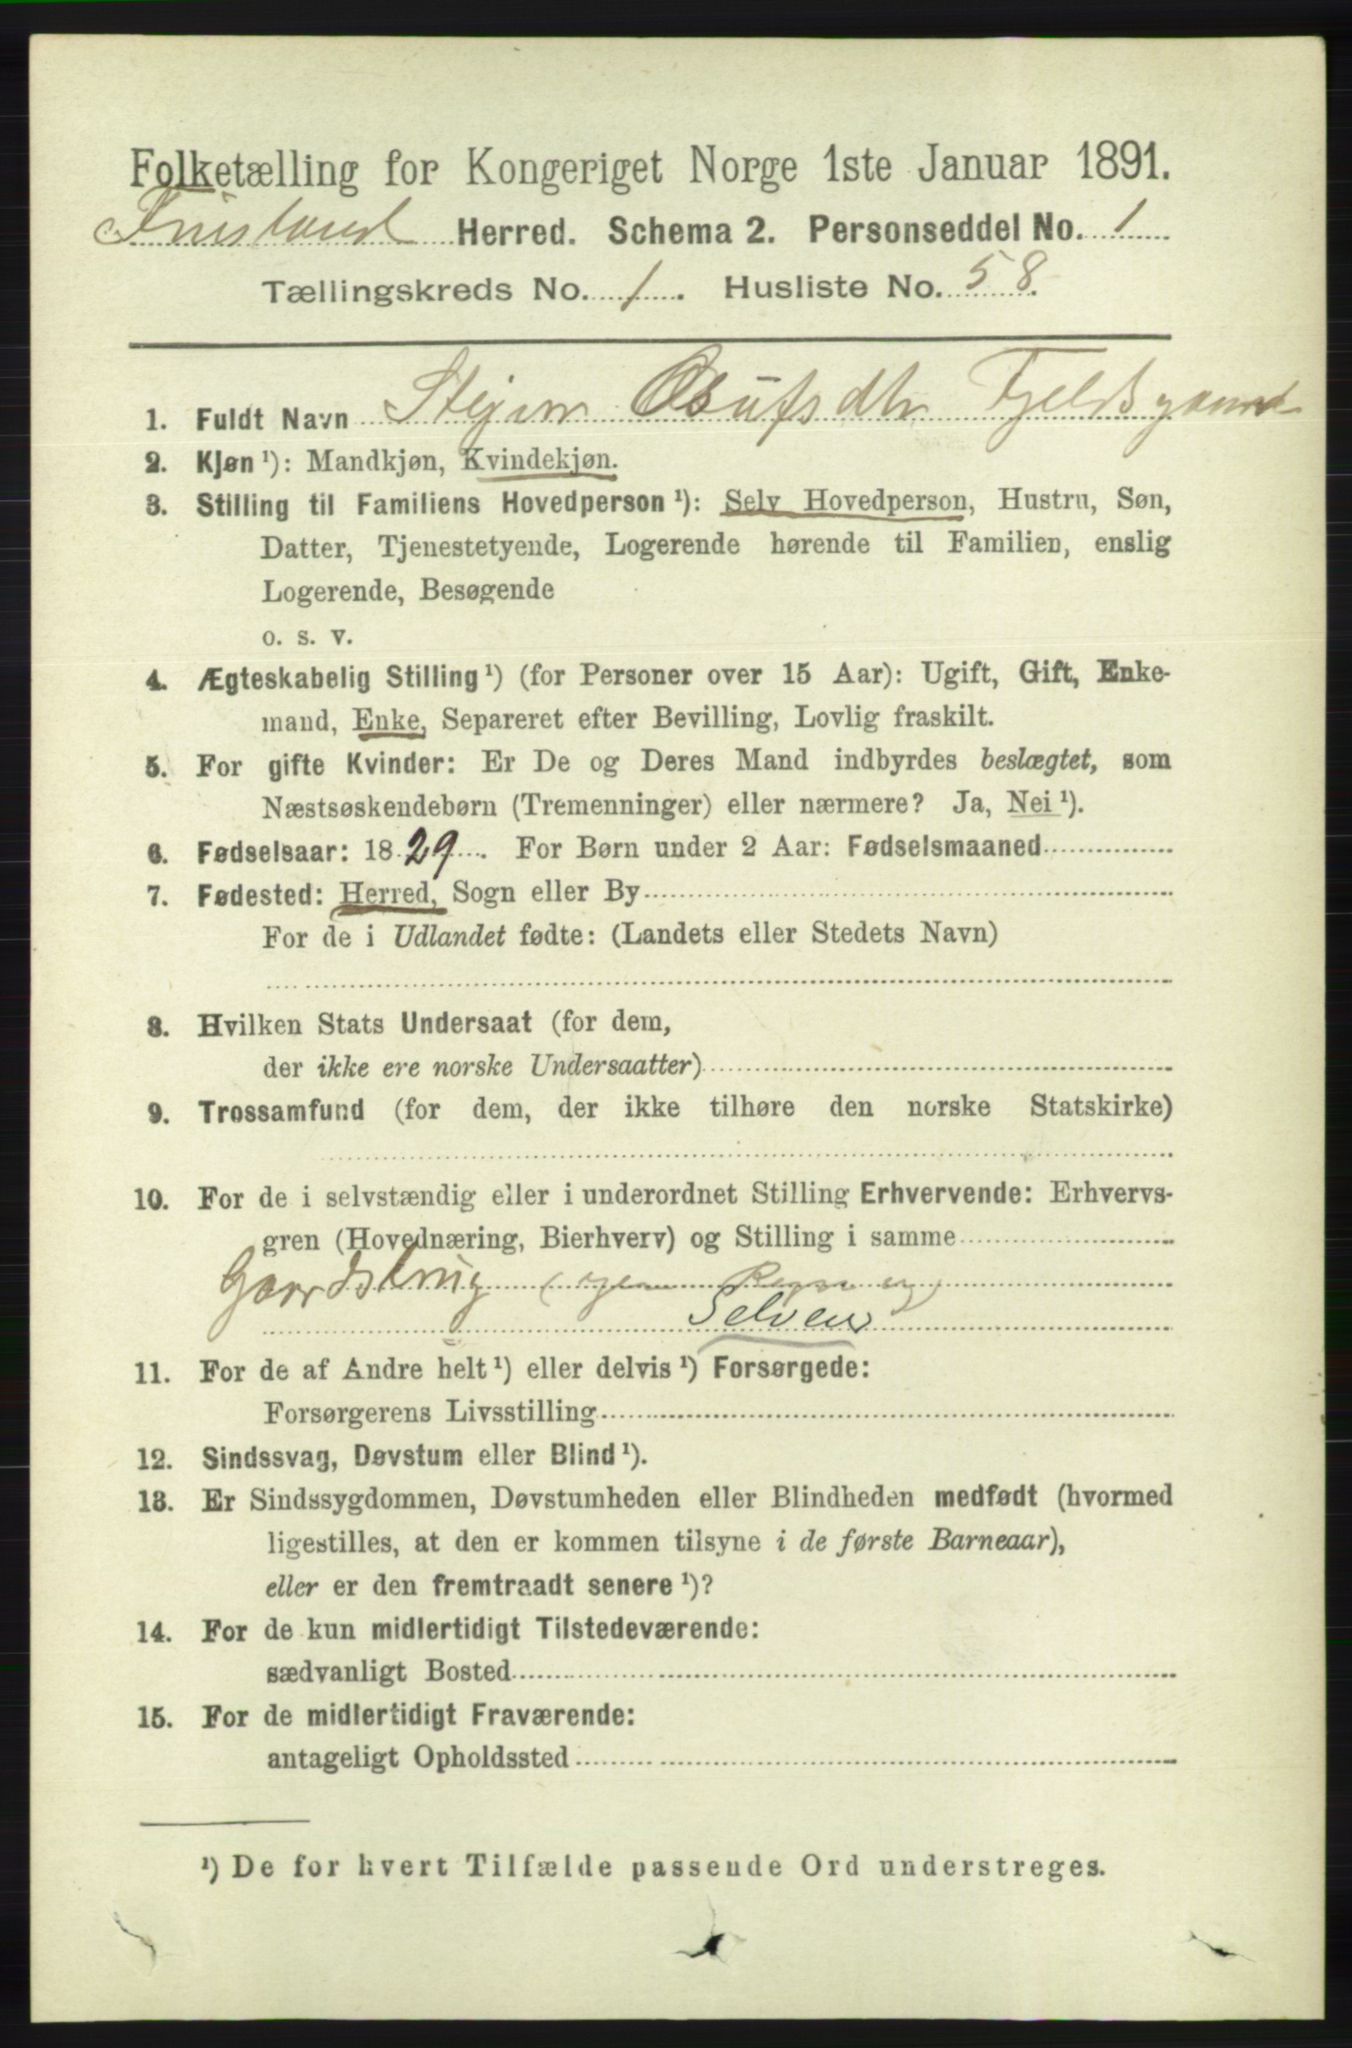 Folketælling for Kongeriget Norge 1ste Januar 1891.
Herred. Schema 2. Personseddel No. 1
Tællingskreds No. 1. Husliste No. 58.
1. Fuldt Navn
2. Kjøn ¹): Mandkjøn, Kvindekjøn.
3. Stilling til Familiens Hovedperson ¹): Selv Hovedperson, Hustru, Søn,
Datter, Tjenestetyende, Logerende hørende til Familien, enslig
Logerende, Besøgende
o. s. v.
4. Ægteskabelig Stilling ¹) (for Personer over 15 Aar): Ugift, Gift, Enke-
mand, Enke, Separeret efter Bevilling, Lovlig fraskilt.
5. For gifte Kvinder: Er De og Deres Mand indbyrdes beslægtet, som
Næstsøskendebørn (Tremenninger) eller nærmere? Ja, Nei ¹).
6. Fødselsaar: 1829. For Børn under 2 Aar: Fødselsmaaned
7. Fødested: Herred, Sogn eller By
For de i Udlandet fødte: (Landets eller Stedets Navn)
8. Hvilken Stats Undersaat (for dem,
der ikke ere norske Undersaatter)
9. Trossamfund (for dem, der ikke tilhøre den norske Statskirke)
10. For de i selvstændig eller i underordnet Stilling Erhvervende: Erhvervs-
gren (Hovednæring, Bierhverv) og Stilling i samme
Gaardsbrug
Selveier
11. For de af Andre helt ¹) eller delvis ¹) Forsørgede:
Forsørgerens Livsstilling
12. Sindssvag, Døvstum eller Blind ¹).
13. Er Sindssygdommen, Døvstumheden eller Blindheden medfødt (hvormed
ligestilles, at den er kommen tilsyne i de første Barneaar),
eller er den fremtraadt senere ¹)?
14. For de kun midlertidigt Tilstedeværende:
sædvanligt Bosted
15. For de midlertidigt Fraværende:
antageligt Opholdssted
¹) De for hvert Tilfælde passende Ord understreges.